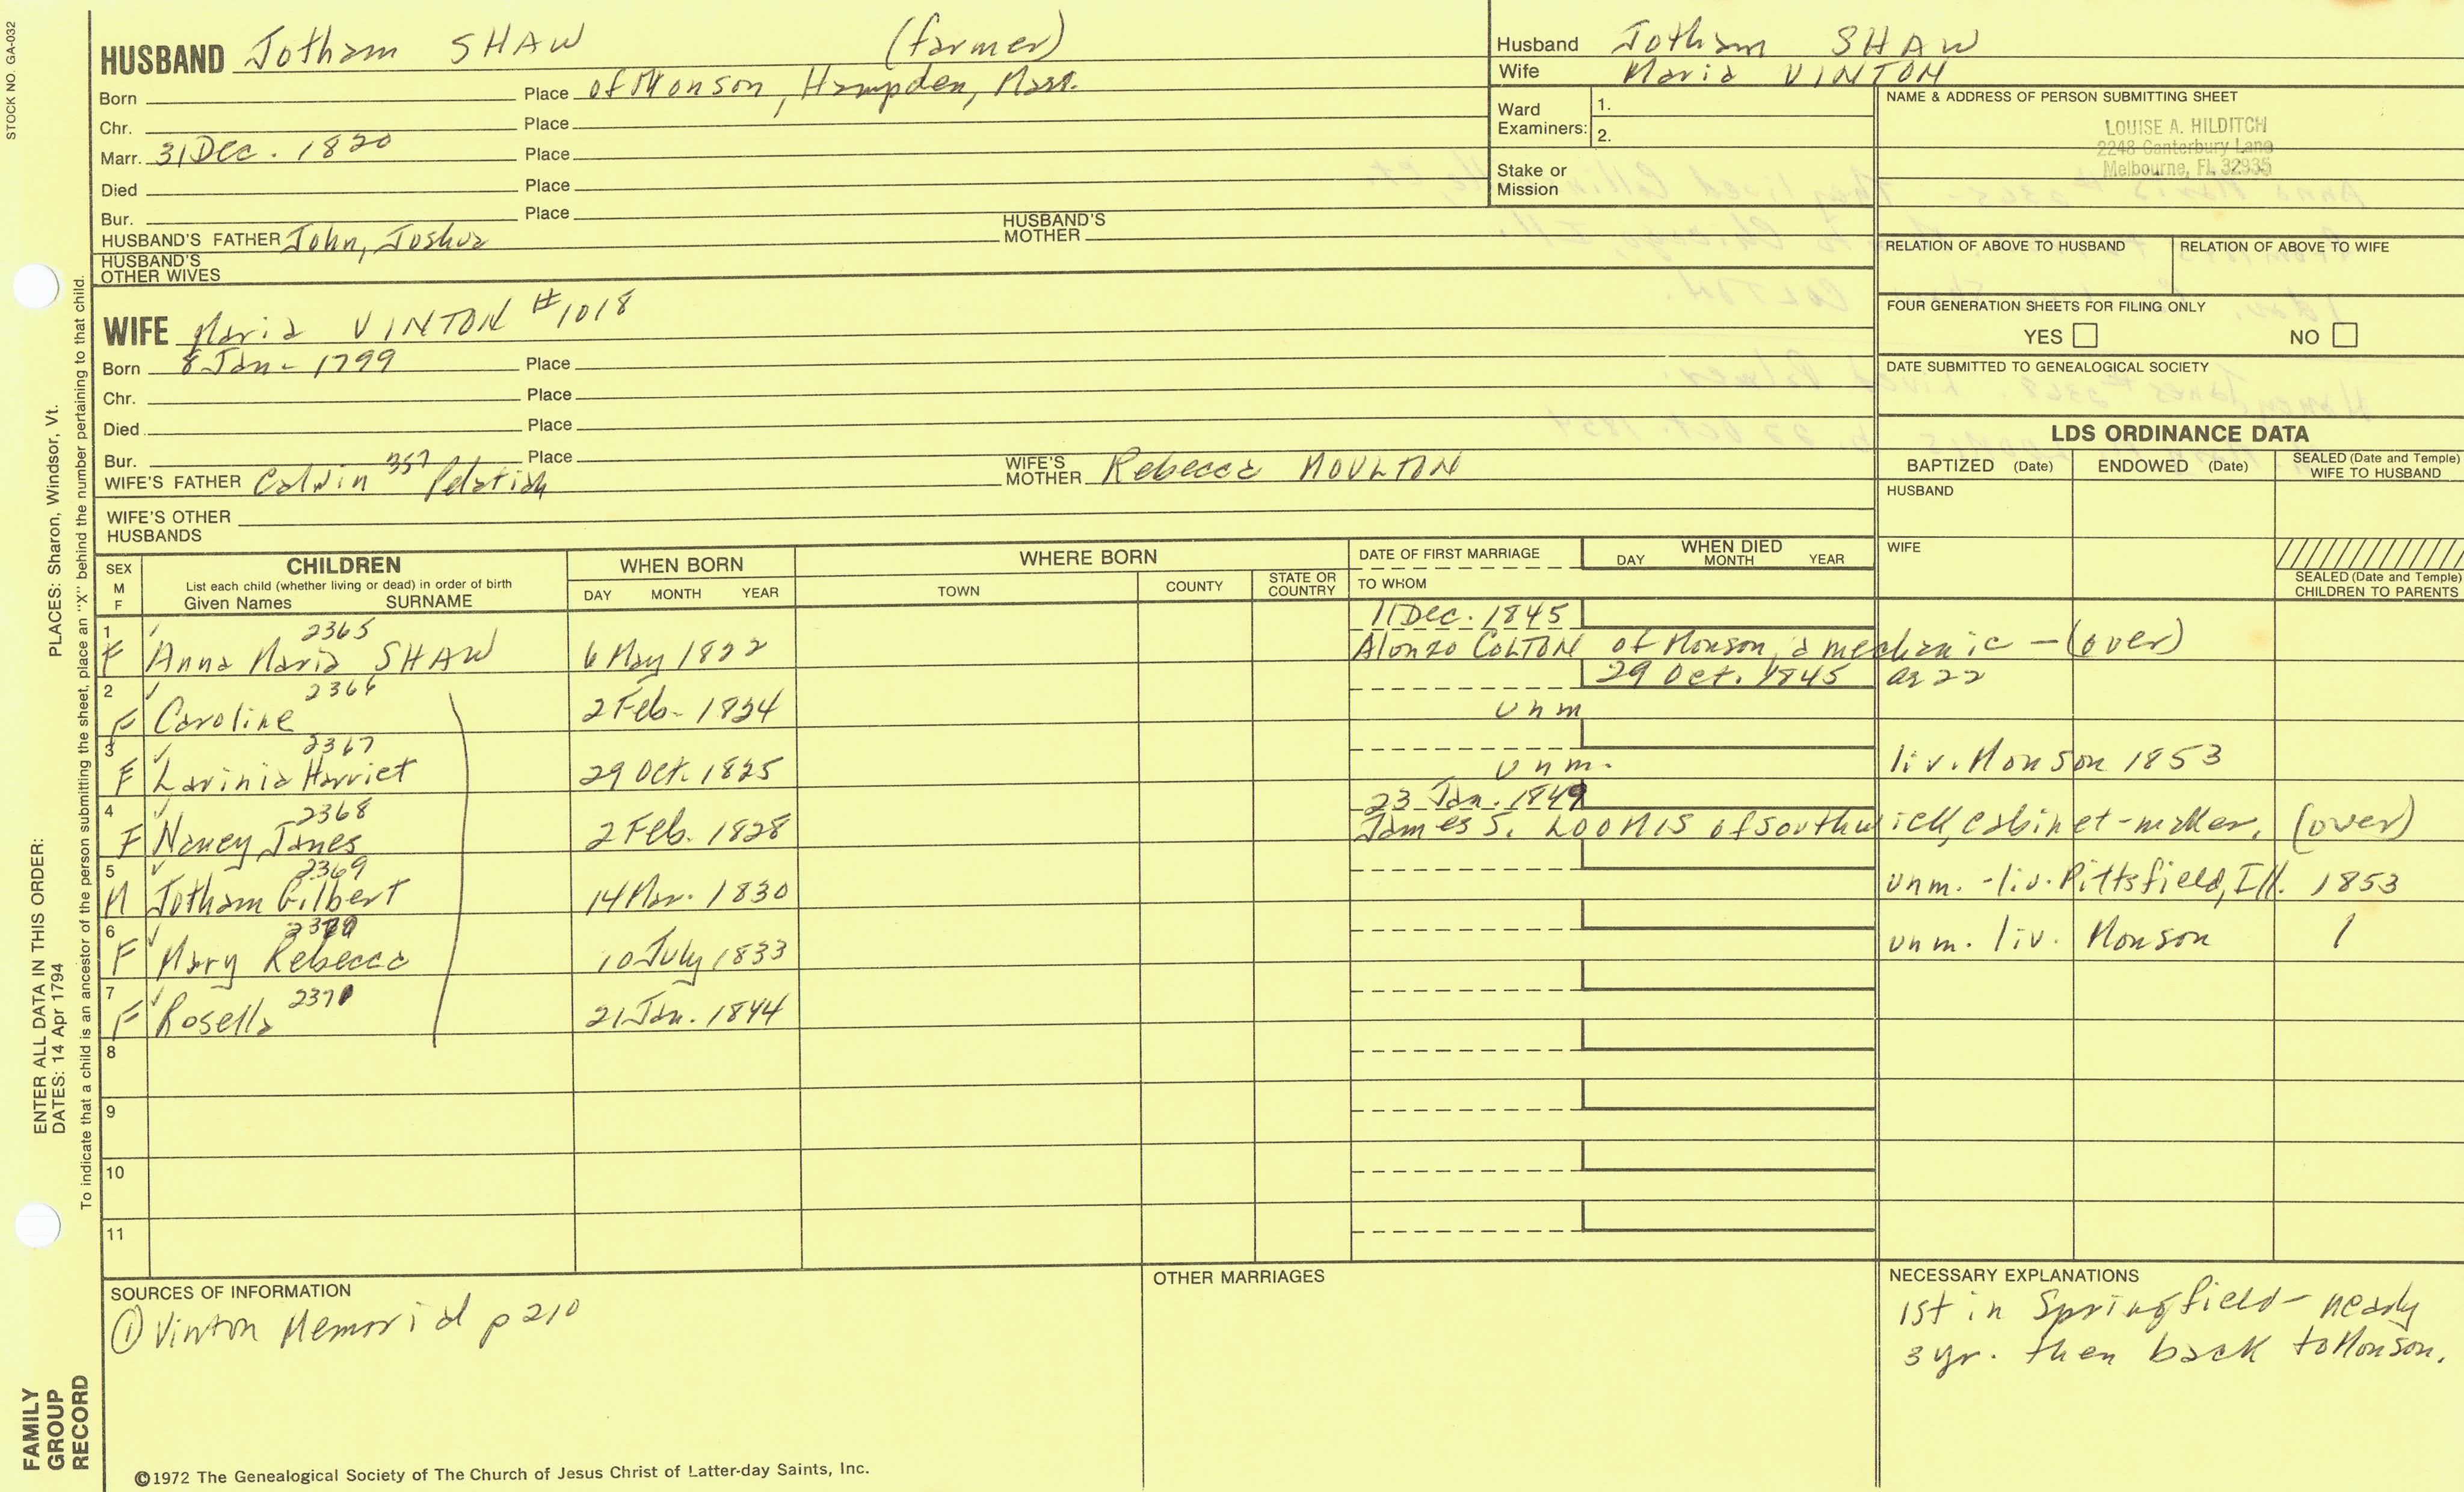 STOCK NO. GA-032
HUSBAND Jotham SHAW (farmer)
Born Place of Monson, Hampden, Mass.
Chr. Place
Marr. 31 Dec. 1820 Place
Died Place
Bur. Place
HUSBAND'S FATHER John, Joshua HUSBAND'S MOTHER
HUSBAND'S OTHER WIVES
WIFE Maria VINTON #1018
Born 8 Jan- 1799 Place
Chr. Place
Died Place
Bur. Place
WIFE'S FATHER Calvin 357 Pelatiah WIFE'S MOTHER Rebecca MOULTON
WIFE'S OTHER HUSBANDS
Husband Jotham SHAW
Wife Maria VINTON
Ward Examiners: 1.
2.
Stake or Mission
NAME & ADDRESS OF PERSON SUBMITTING SHEET
LOUISE A. HILDITCH
2248 Canterbury Lane
Melbourne, FL 32935
RELATION OF ABOVE TO HUSBAND RELATION OF ABOVE TO WIFE
FOUR GENERATION SHEETS FOR FILING ONLY
YES NO
DATE SUBMITTED TO GENEALOGICAL SOCIETY
LDS ORDINANCE DATA
BAPTIZED (Date) ENDOWED (Date) SEALED (Date and Temple) WIFE TO HUSBAND
HUSBAND
WIFE
SEALED (Date and Temple) CHILDREN TO PARENTS
SEX M F
CHILDREN
List each child (whether living or dead) in order of birth
Given Names SURNAME
WHEN BORN
DAY MONTH YEAR
WHERE BORN
TOWN COUNTY STATE OR COUNTRY
DATE OF FIRST MARRIAGE
TO WHOM
WHEN DIED
DAY MONTH YEAR
1 2365 11 Dec. 1845
F Anna Maria SHAW 6 May 1822 Alonzo COLTON of Monson, a mechanic - (over)
2 2366 29 Oct. 1845 ae 22
F Caroline 2 Feb- 1824 unm
3 2367
F Lavinia Harriet 29 Oct. 1825 unm. liv. Monson 1853
4 2368 23 Jan. 1849
F Nancy Janes 2 Feb. 1828 James S. LOOMIS of Southwick, cabinet-maker, (over)
5 2369
M Jotham Gilbert 14 Mar. 1830 unm. - liv. Pittsfield, Ill. 1853
6 2370
F Mary Rebecca 10 July 1833 unm. liv. Monson
7 2371
F Rosella 21 Jan. 1844
8
9
10
11
SOURCES OF INFORMATION
① Vinton Memorial p 210
OTHER MARRIAGES
NECESSARY EXPLANATIONS
1st in Springfield - nearly
3 yr. then back to Monson.
©1972 The Genealogical Society of The Church of Jesus Christ of Latter-day Saints, Inc.
FAMILY GROUP RECORD
ENTER ALL DATA IN THIS ORDER:
DATES: 14 Apr 1794 PLACES: Sharon, Windsor, Vt.
To indicate that a child is an ancestor of the person submitting the sheet, place an "X" behind the number pertaining to that child.